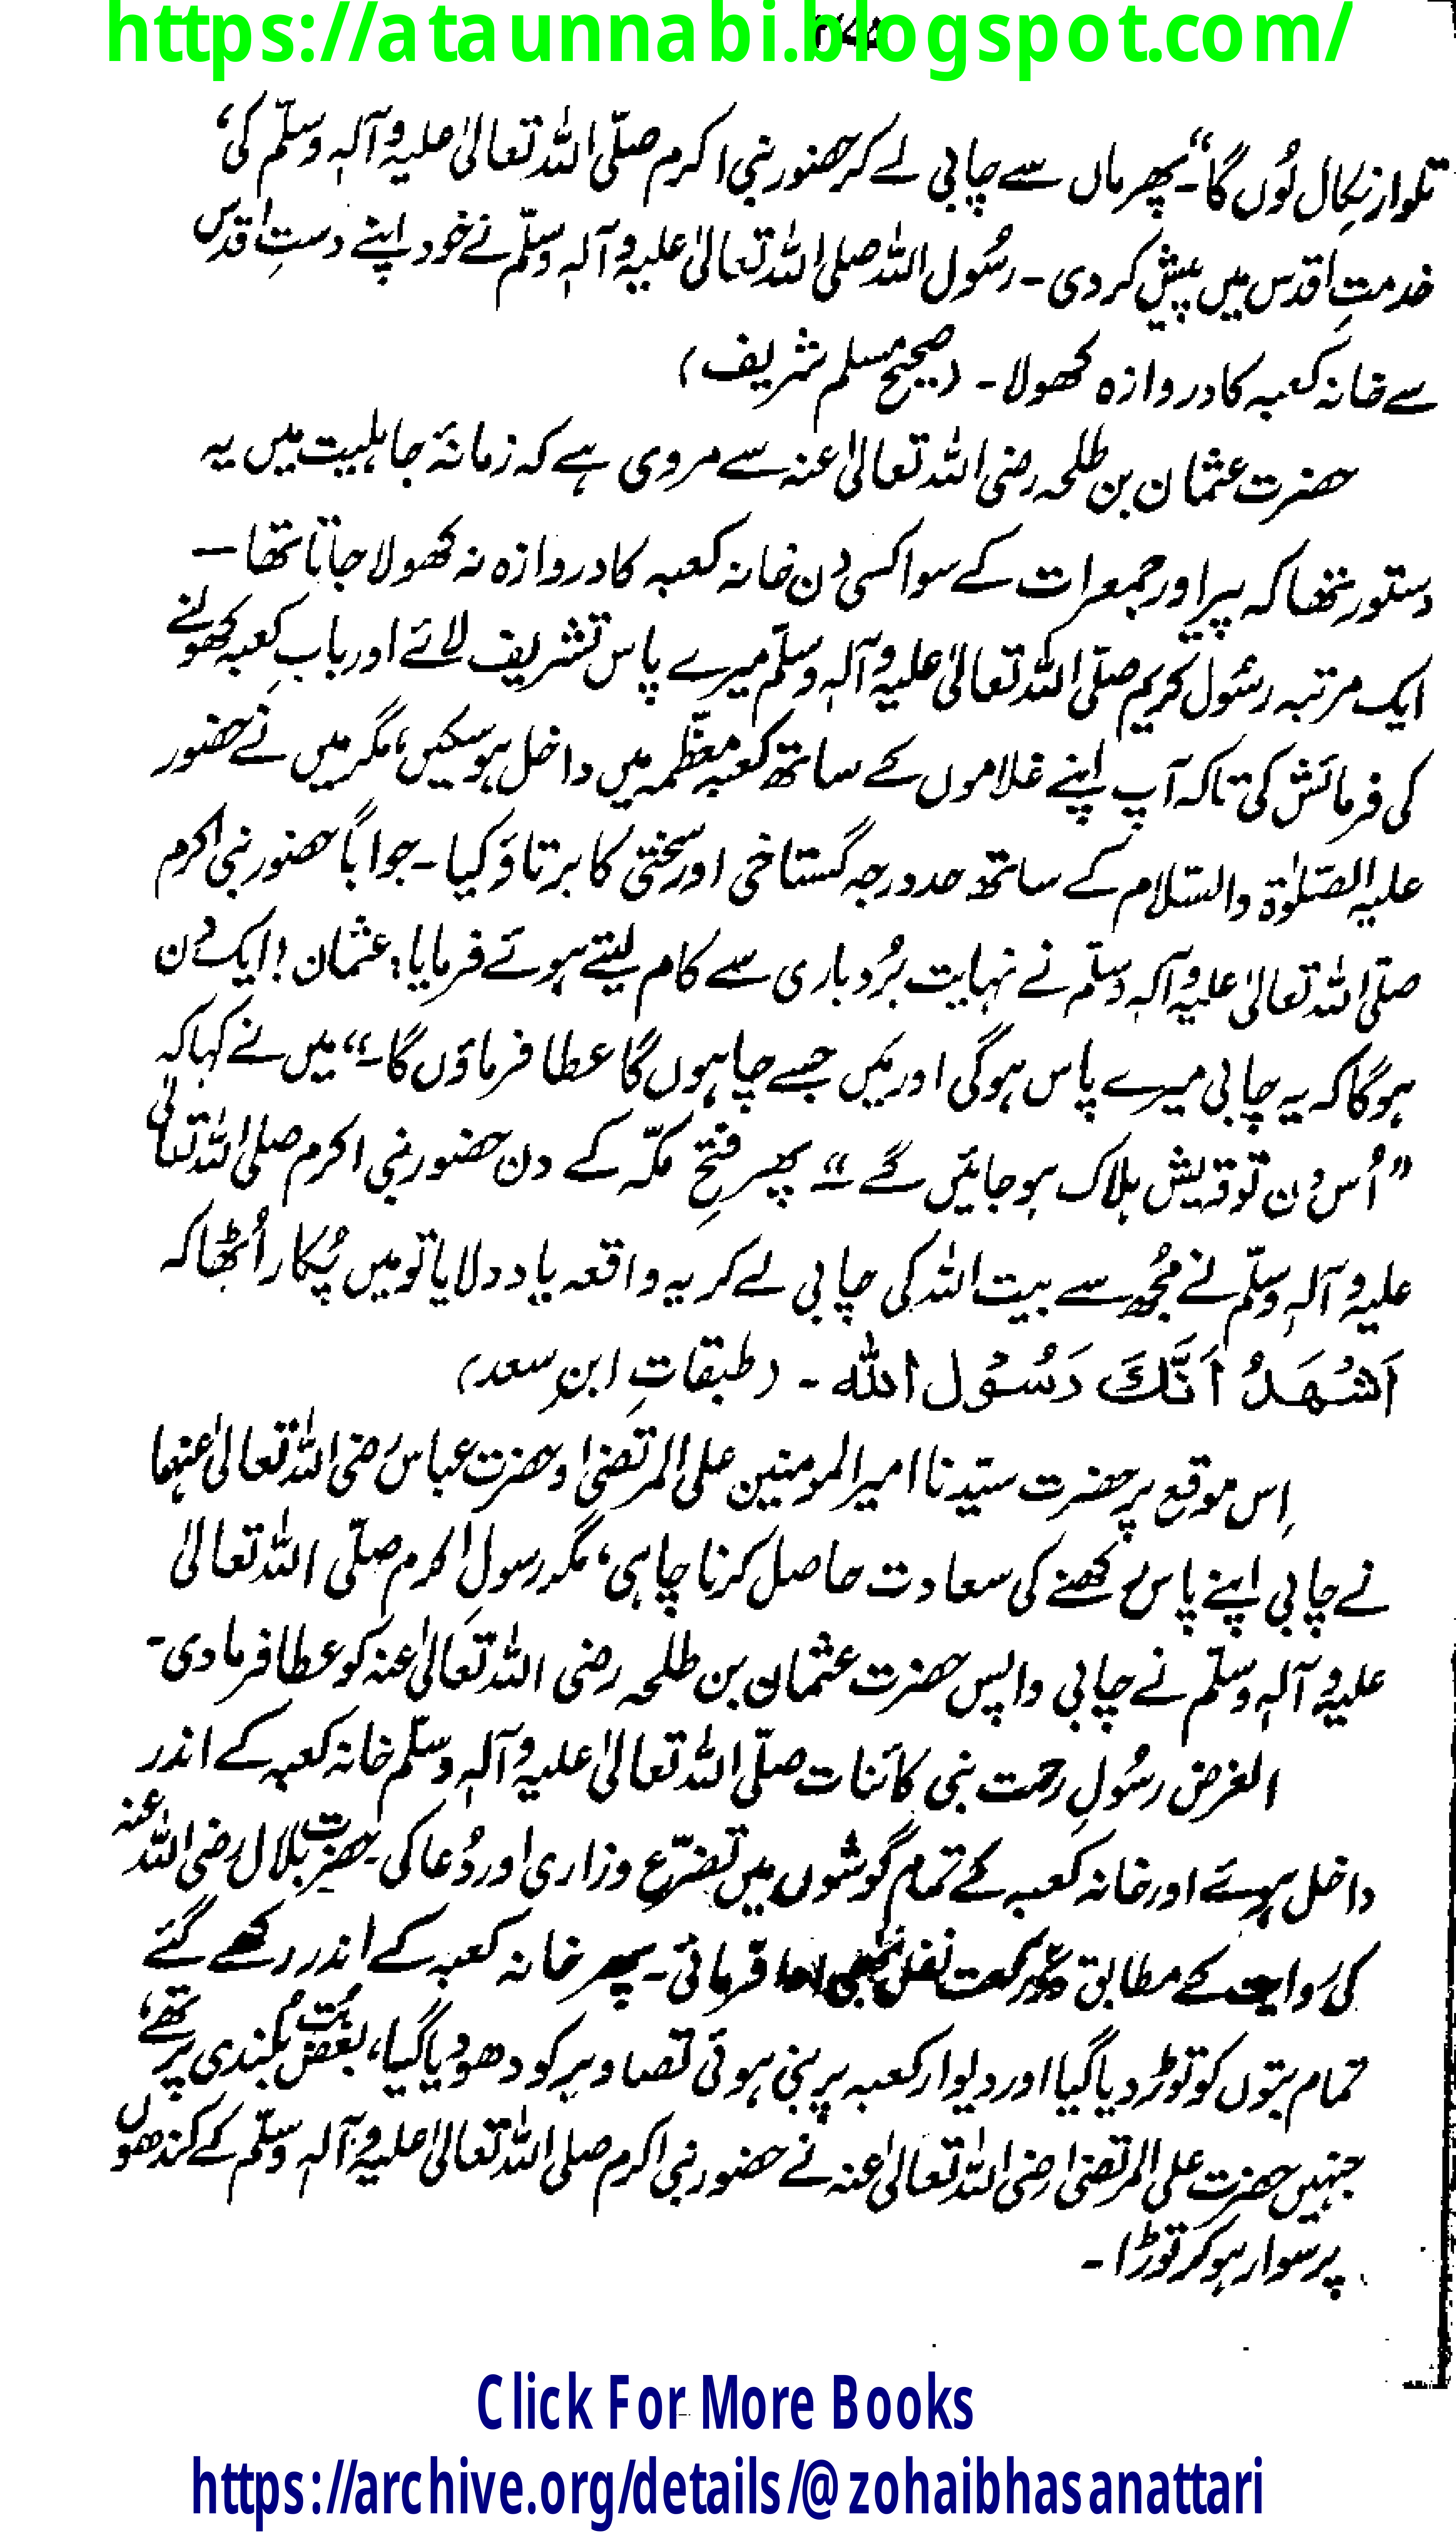 https://ataunnabi.blogspot.com/
تلوار نکال لُوں گا"۔ پھر ماں سے چابی لے کر حضور نبی اکرم صلّی اللہ تعالیٰ علیہ وآلہٖ وسلّم کی،
خدمتِ اقدس میں پیش کر دی۔ رسُول اللہ صلی اللہ تعالیٰ علیہ وآلہٖ وسلّم نے خود اپنے دستِ اقدس
سے خانہ کعبہ کا دروازہ کھولا۔ (صحیح مسلم شریف)
حضرت عثمان بن طلحہ رضی اللہ تعالیٰ عنہ سے مروی ہے کہ زمانۂ جاہلیت میں یہ
دستور تھا کہ پیر اور جمعرات کے سوا کسی دن خانہ کعبہ کا دروازہ نہ کھولا جاتا تھا—
ایک مرتبہ رسُول کریم صلّی اللہ تعالیٰ علیہ وآلہٖ وسلّم میرے پاس تشریف لائے اور بابِ کعبہ کھولنے
کی فرمائش کی تاکہ آپ اپنے غلاموں کے ساتھ کعبہ معظّمہ میں داخل ہو سکیں، مگر میں نے حضور
علیہ الصّلوٰۃ والسّلام کے ساتھ حد درجہ گستاخی اور سختی کا برتاؤ کیا۔ جواباً حضور نبی اکرم
صلّی اللہ تعالیٰ علیہ وآلہٖ وسلّم نے نہایت بُردباری سے کام لیتے ہوئے فرمایا: عثمان! ایک دن
ہو گا کہ یہ چابی میرے پاس ہو گی اور میَں جسے چاہوں گا عطا فرماؤں گا۔" میں نے کہا کہ
"اُس دن تو قریش ہلاک ہو جائیں گے۔" پھر فتحِ مکّہ کے دن حضور نبی اکرم صلی اللہ تعالیٰ
علیہ وآلہٖ وسلّم نے مجُھ سے بیت اللہ کی چابی لے کر یہ واقعہ یاد دلایا تو میں پُکار اُٹھا کہ
اَشْهَدُ اَنَّكَ رَسُوْل الله ۔ (طبقاتِ ابنِ سعد)
اِس موقع پر حضرت سیّدنا امیر المومنین علی المرتضیٰ و حضرت عباس رضی اللہ تعالیٰ عنہما
نے چابی اپنے پاس رکھنے کی سعادت حاصل کرنا چاہی، مگر رسولِ اکرم صلّی اللہ تعالیٰ
علیہ وآلہٖ وسلّم نے چابی واپس حضرت عثمان بن طلحہ رضی اللہ تعالیٰ عنہ کو عطا فرما دی۔
الغرض رسُولِ رحمت نبی کائنات صلّی اللہ تعالیٰ علیہ وآلہٖ وسلّم خانہ کعبہ کے اندر
داخل ہوئے اور خانہ کعبہ کے تمام گوشوں میں تضرّع و زاری اور دُعا کی۔ حضرت بلال رضی اللہ عنہ
کی روایت کے مطابق نفل بھی ادا فرمائی۔ پھر خانہ کعبہ کے اندر رکھے گئے
تمام بتوں کو توڑ دیا گیا اور دیوارِ کعبہ پر بنی ہوئی تصاویر کو دھو دیا گیا، بعض بُت بُلندی پر تھے،
جنہیں حضرت علی المرتضیٰ رضی اللہ تعالیٰ عنہ نے حضور نبی اکرم صلی اللہ تعالیٰ علیہ وآلہٖ وسلّم کے کندھوں
پر سوار ہو کر توڑا۔
Click For More Books
https://archive.org/details/@zohaibhasanattari